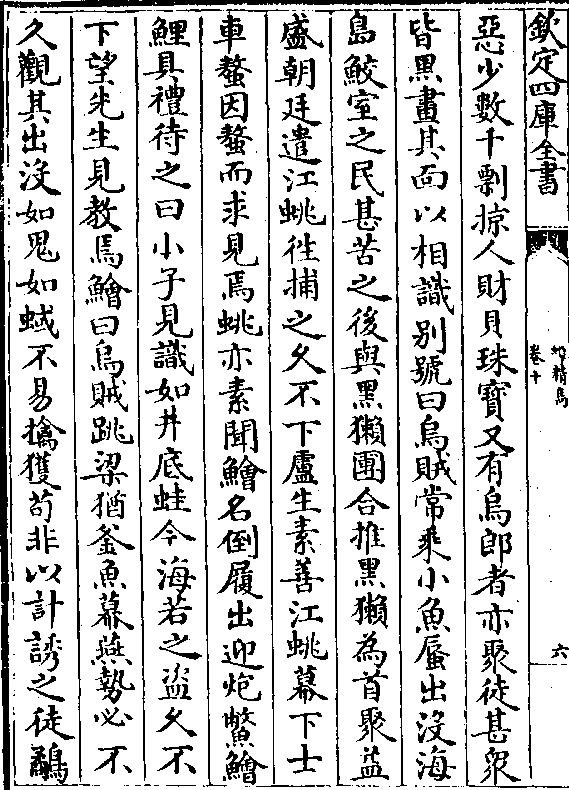 欽定四庫全書
卷十
六
惡少數千剽掠人財貝珠寶又有烏郎者亦聚徒甚衆
皆黑畫其面以相識别號曰烏賊常乘小魚蜃出沒海
島鮫室之民甚苦之後與黑獺團合推黑獺為首聚益
盛朝廷遣江蛦徃捕之久不下盧生素善江蛦幕下士
車螯因螯而求見焉蛦亦素聞鱠名倒履出迎炮鱉鱠
鯉具禮待之曰小子見識如井底蛙今海若之盜久不
下望先生見教焉鱠曰烏賊跳梁猶釜魚幕燕勢必不
久觀其出沒如鬼如蜮不易擒獲苟非以計誘之徒鷸